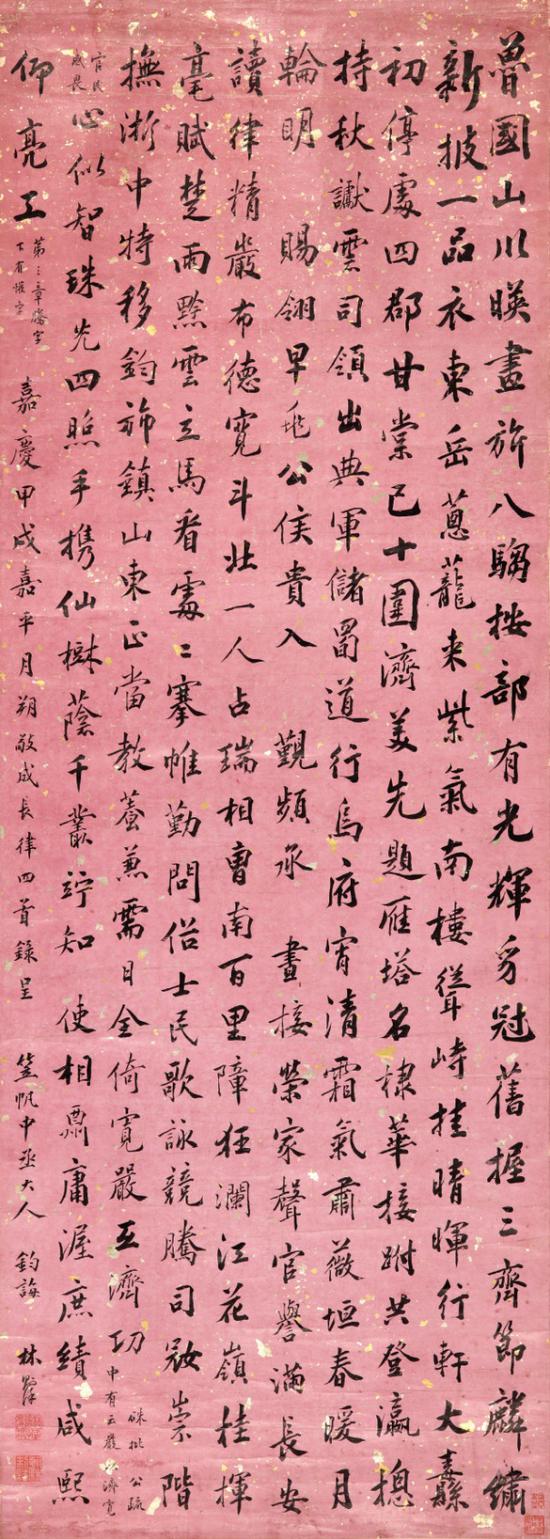 魯國山川暎畫旂八騶按部有光輝豸冠舊握三齊節麟繡
新披一品衣東岳蔥蘢来紫氣南樓聳峙挂晴暉行軒大纛
初停處四郡甘棠已十圍濟美先題雁塔名棣華接跗共登瀛摠
持秋讞雲司領出典軍儲蜀道行烏府宵清霜氣肅薇垣春暖月
輪明 賜翎早兆公侯貴入 覲頻承 晝接榮家聲官譽滿長安
讀律精嚴布德寬斗壯一人占瑞相曹南百里障狂瀾江花嶺桂揮
毫賦楚雨黔雲立馬看處〻搴帷勤問俗士民歌詠競騰司敭崇階
撫浙中特移鈞斾鎮山東正當教養兼需日全倚寬嚴互濟功 硃批公疏中有云嚴以濟寬
官民感畏 心似智珠光四照手攜仙樾蔭千叢竚知 使相庸渥庶績咸熙
仰亮工 第三章騰字下有懽字 嘉慶甲戌嘉平月朔敬成長律四首錄呈 笠帆中丞大人 鈞誨 林